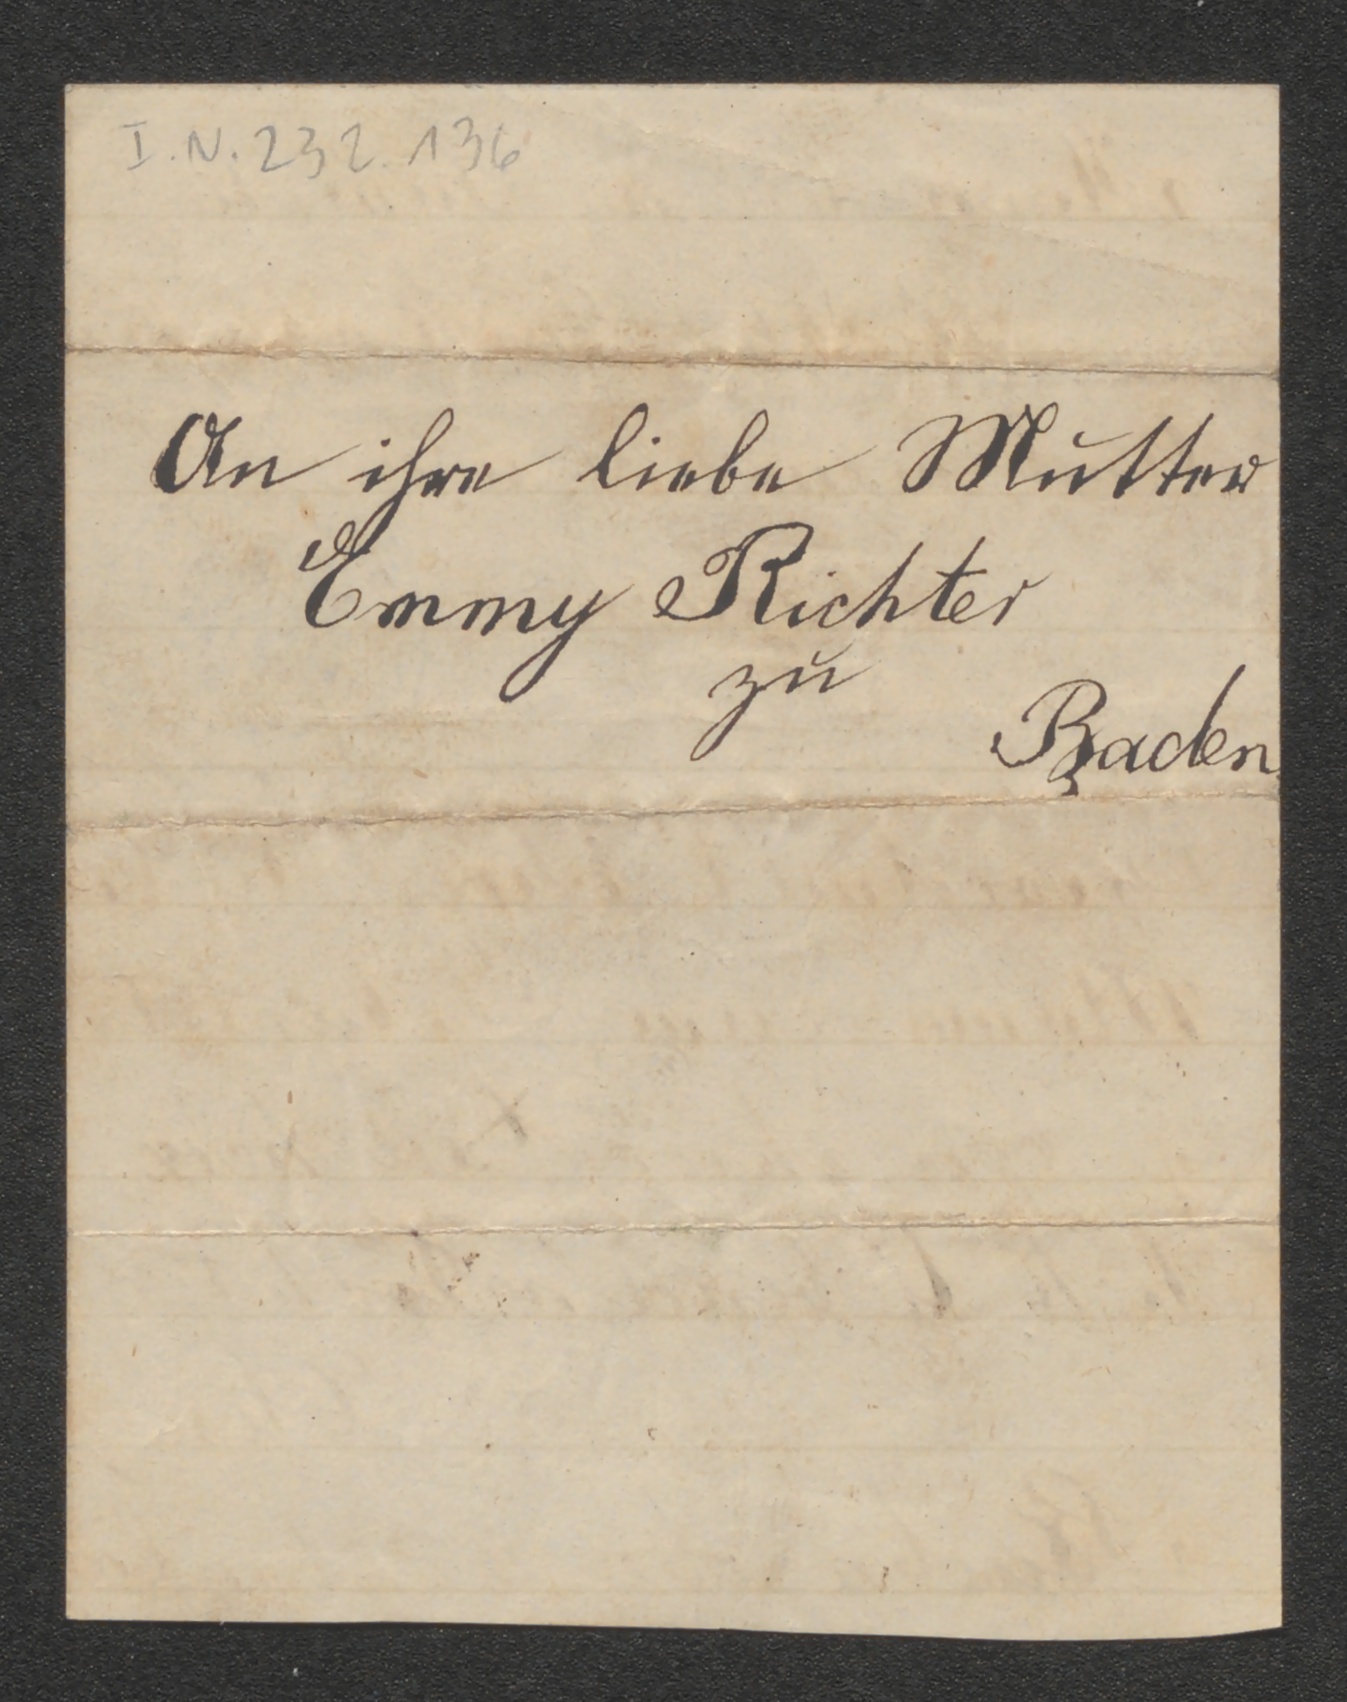 I.N. 232.136
An ihre liebe Mutter
Emmy Richter
zu
Baden